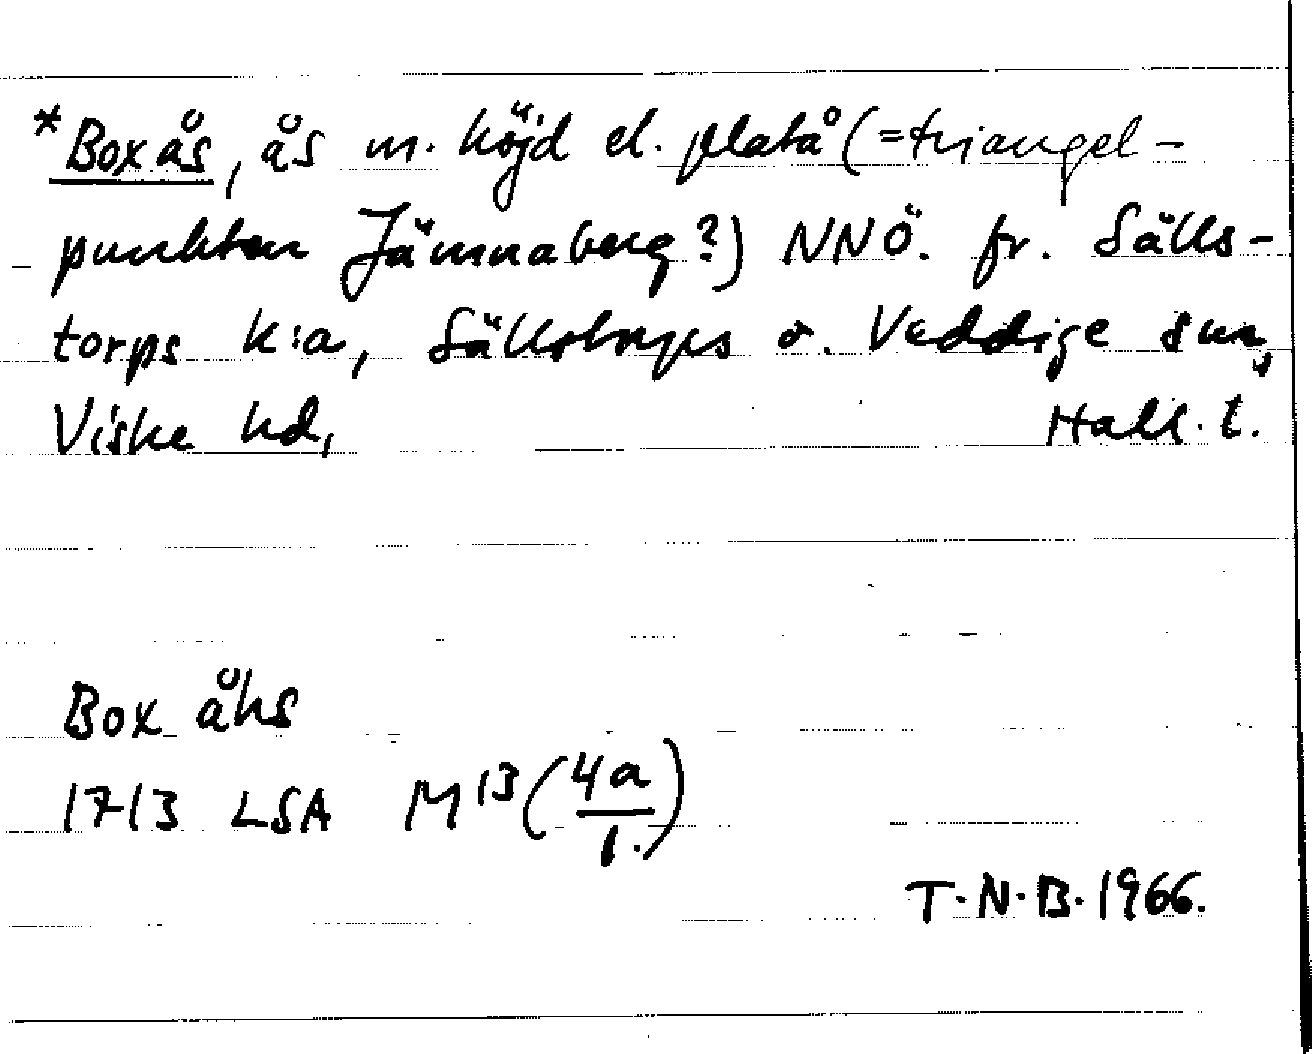 *Boxås, ås m. höjd el. platå (=triangel-
punkten Jämnaberg?) NNÖ. fr. Sälls-
torps k:a, Sällstorps o. Veddige snr,
Viske hd, Hall. l.
Box åhs
1713 LSA M13 (4a/1.)
T.N.B. 1966.